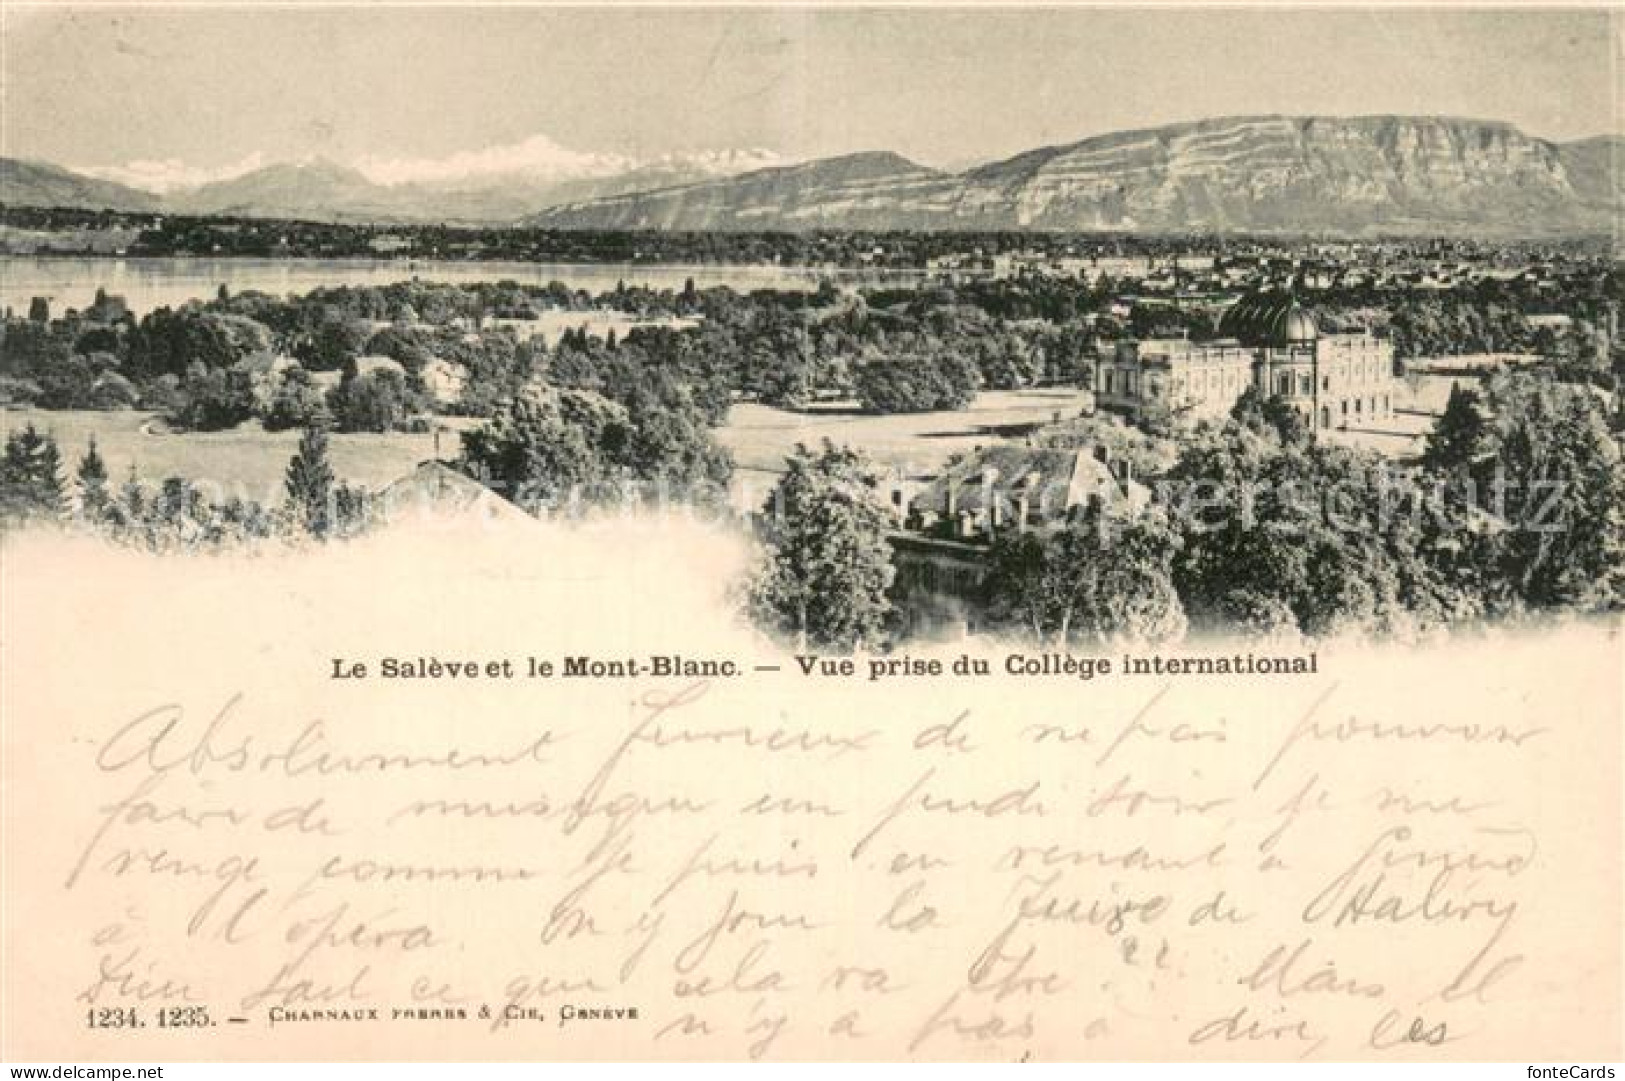 Le Salève et le Mont-Blanc. — Vue prise du Collège international
Absolument furieux de ne pas pouvoir
faire de musique un jeudi soir, je me
venge comme je puis en venant à Genève
à l'opéra. On y joue la Juive de Halévy
Dieu sait ce que cela va être ?? Mais il
n'y a pas à dire, les
1234. 1235. — CHARNAUX FRERES & CIE, GENÈVE
potento.de - Kopierschutz
www.delcampe.net
fonteCards